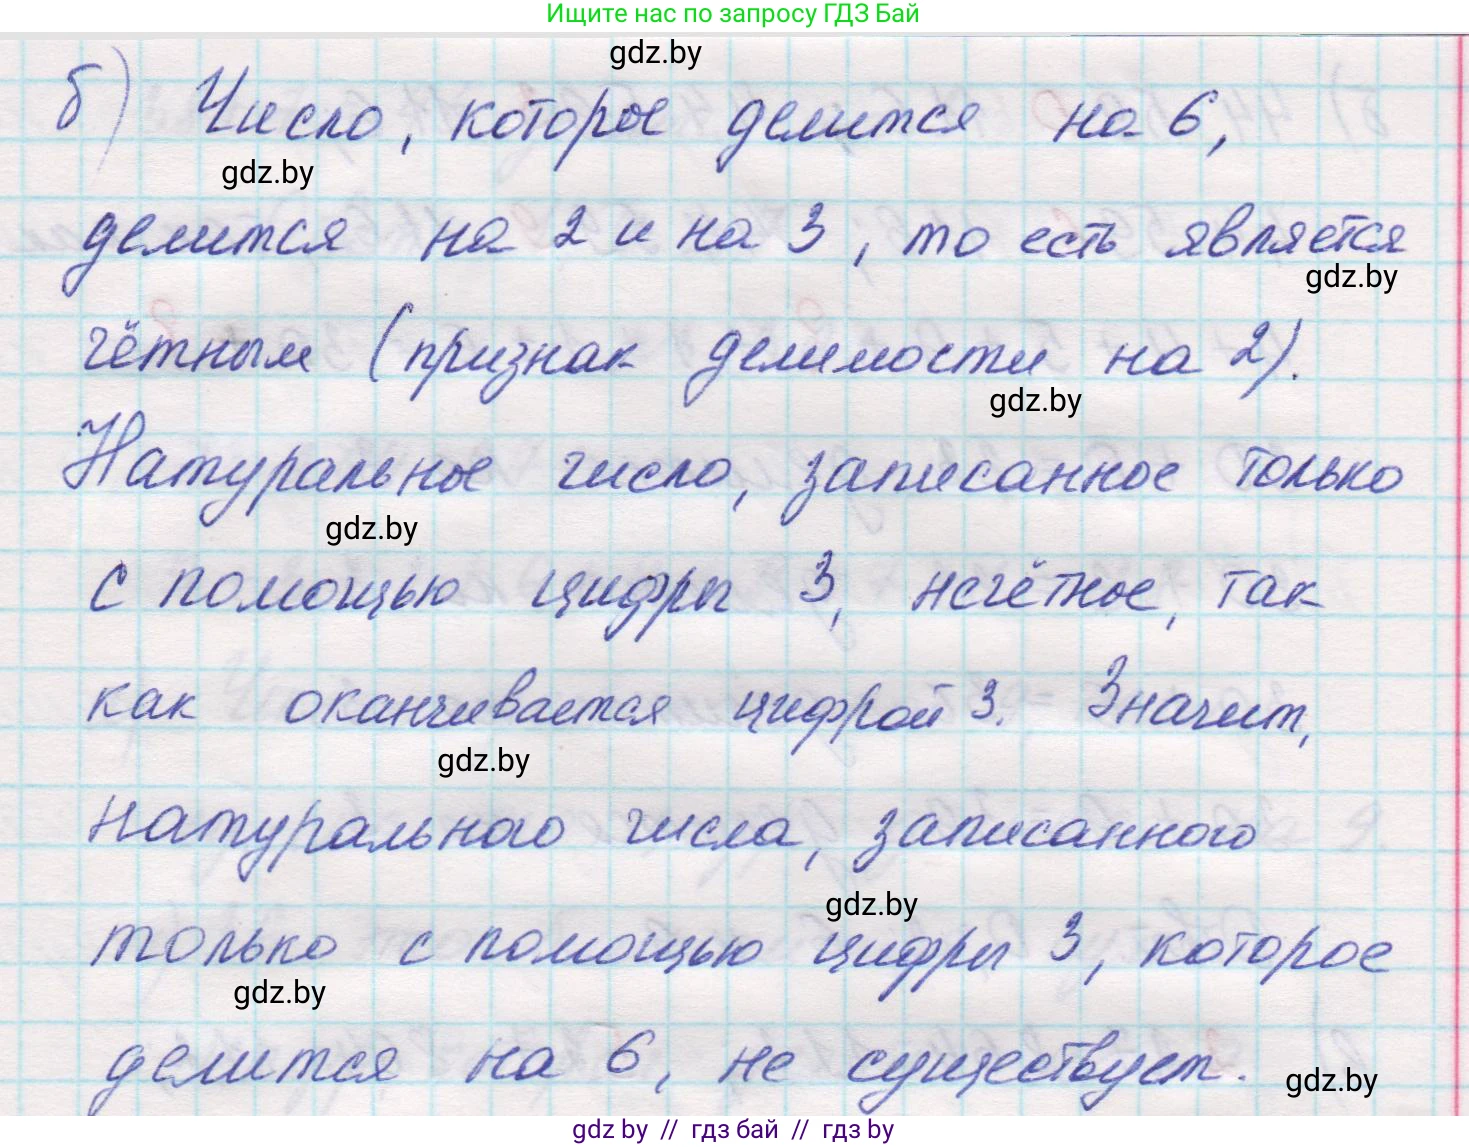 Ищите нас по запросу ГДЗ Бай
gdz.by
б) Число, которое делится на 6,
gdz.by
делится на 2 и на 3, то есть является
gdz.by
чётным (признак делимости на 2).
gdz.by
Натуральное число, записанное только
gdz.by
с помощью цифры 3, нечётное, так
как оканчивается цифрой 3. Значит,
gdz.by
натурального числа, записанного
gdz.by
только с помощью цифры 3, которое
gdz.by
делится на 6, не существует.
gdz.by
gdz by // гдз бай // гдз by